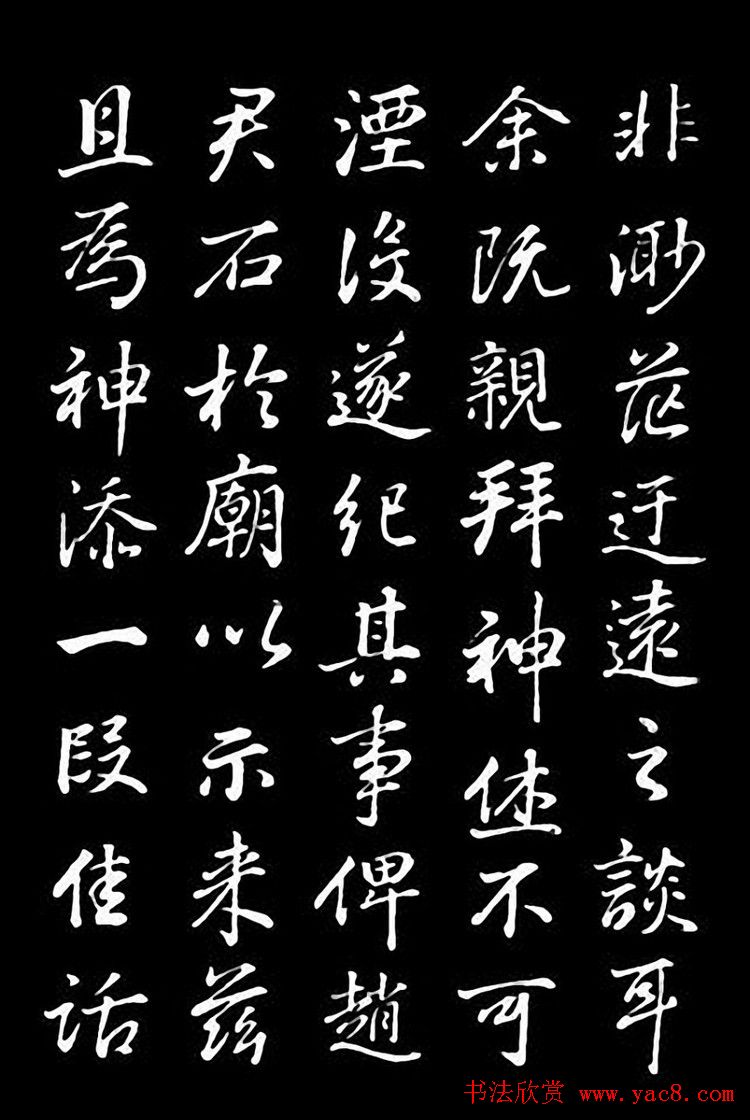 非渺茫迂遠之談耳
余既親拜神休不可
湮没遂紀其事俾趙
君石於廟以示来茲
且為神添一段佳話
书法欣赏 www.yac8.com